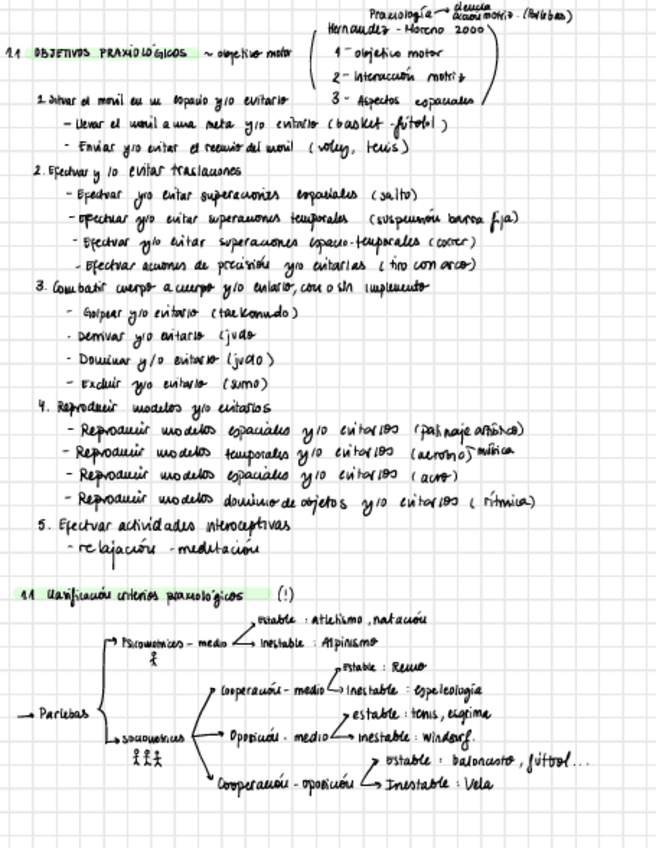 Praxiología → ciencia acción motriz. (Parlebas)
Hernandez - Moreno 2000
1 - objetivo motor
2 - Interacción motriz
3 - Aspectos espaciales
2.1 OBJETIVOS PRAXIOLÓGICOS ~ objetivo motor
1. Situar el movil en un espacio y/o evitarlo
- Llevar el movil a una meta y/o evitarlo (basket - fútbol)
- Enviar y/o evitar el reenvio del movil (voley, tenis)
2. Efectuar y/o evitar traslaciones
- Efectuar y/o evitar superaciones espaciales (salto)
- efectuar y/o evitar superaciones temporales (suspensión barra fija)
- Efectuar y/o evitar superaciones espacio-temporales (correr)
- Efectuar acciones de precisión y/o evitarlas (tiro con arco)
3. Combatir cuerpo a cuerpo y/o evitarlo, con o sin implemento
- Golpear y/o evitarlo (taekondo)
- Derrivar y/o evitarlo (judo
- Dominar y/o evitarlo (judo)
- Excluir y/o evitarlo (sumo)
4. Reproducir modelos y/o evitarlos
- Reproducir modelos espaciales y/o evitarlos (patinaje artístico)
- Reproducir modelos temporales y/o evitarlos (aerobic) música
- Reproducir modelos espaciales y/o evitarlos (acro)
- Reproducir modelos dominio de objetos y/o evitarlos (rítmica)
5. Efectuar actividades interoceptivas
- relajación - meditación
1.1 Clasificación criterios praxiológicos (!)
→ Parlebas
Psicomotrices - medio
Estable : Atletismo, natación
Inestable : Alpinismo
sociomotrices
Cooperación - medio
Estable : Remo
Inestable : espeleología
Oposición - medio
estable : tenis, esgrima
inestable : windsurf.
Cooperación - oposición
Estable : baloncesto, fútbol...
Inestable : Vela